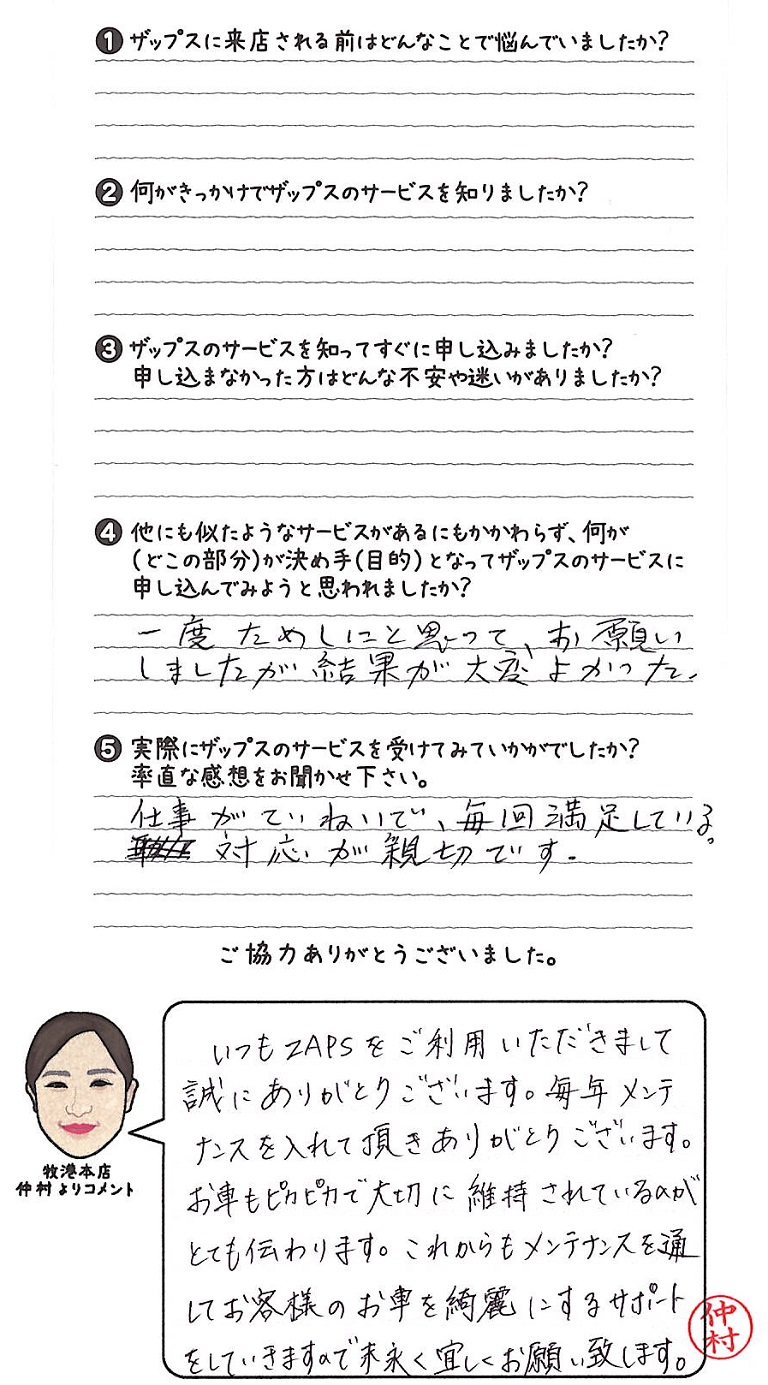 1 ザップスに来店される前はどんなことで悩んでいましたか?
2 何がきっかけでザップスのサービスを知りましたか?
3 ザップスのサービスを知ってすぐに申し込みましたか?
申し込まなかった方はどんな不安や迷いがありましたか?
4 他にも似たようなサービスがあるにもかかわらず、何が
(どこの部分)が決め手(目的)となってザップスのサービスに
申し込んでみようと思われましたか?
一度ためしにと思って、お願い
しましたが結果が大変よかった.
5 実際にザップスのサービスを受けてみていかがでしたか?
率直な感想をお聞かせ下さい。
仕事がていねいで、毎回満足している。
対応が親切です.
ご協力ありがとうございました。
いつもZAPSをご利用いただきまして
誠にありがとうございます。毎年メンテ
ナンスを入れて頂きありがとうございます。
お車もピカピカで大切に維持されているのが
とても伝わります。これからもメンテナンスを通
してお客様のお車を綺麗にするサポート
をしていきますので末永く宜しくお願い致します。
牧港本店
仲村よりコメント
仲村